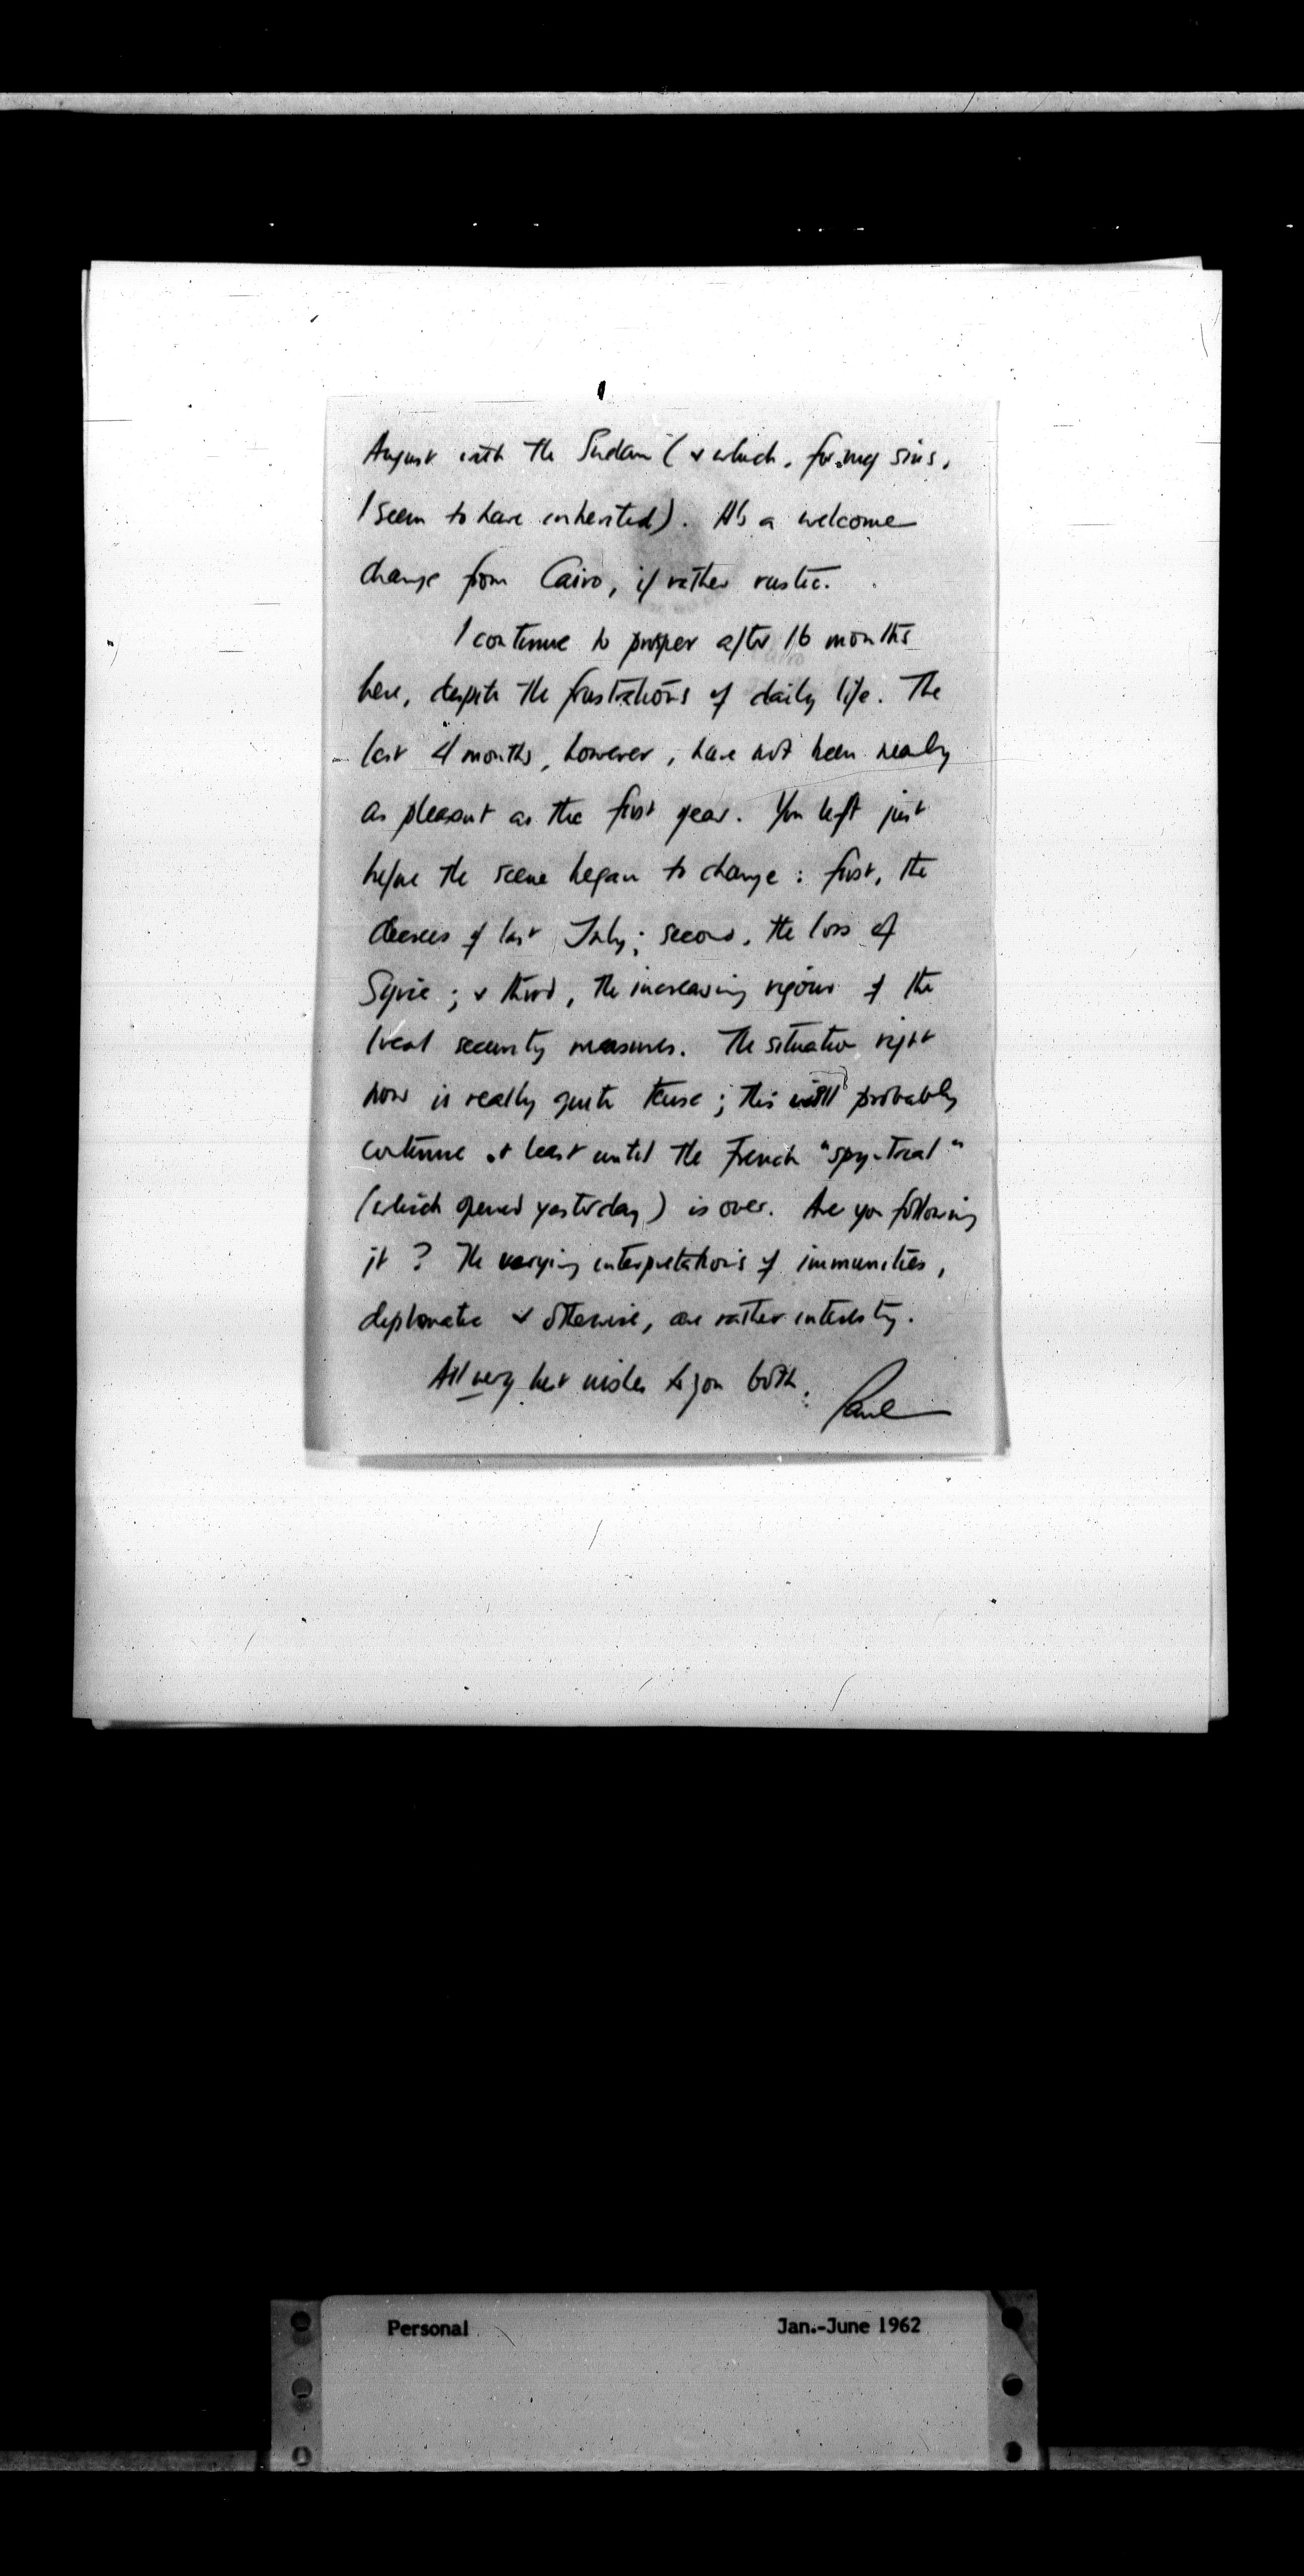 August with the Sudan (& which, for my sins,
I seem to have inherited). It's a welcome
change from Cairo, if rather rustic.
I continue to prosper after 16 months
here, despite the frustrations of daily life. The
last 4 months, however, have not been nearly
as pleasant as the first year. You left just
before the scene began to change: first, the
decrees of last July; second, the loss of
Syria; & third, the increasing rigour of the
local security measures. The situation right
now is really quite tense; this will probably
continue at least until the French "spy-trial"
(which opened yesterday) is over. Are you following
it? The varying interpretations of immunities,
diplomatic & otherwise, are rather interesting.
All very best wishes to you both.
Paul
Personal Jan.-June 1962